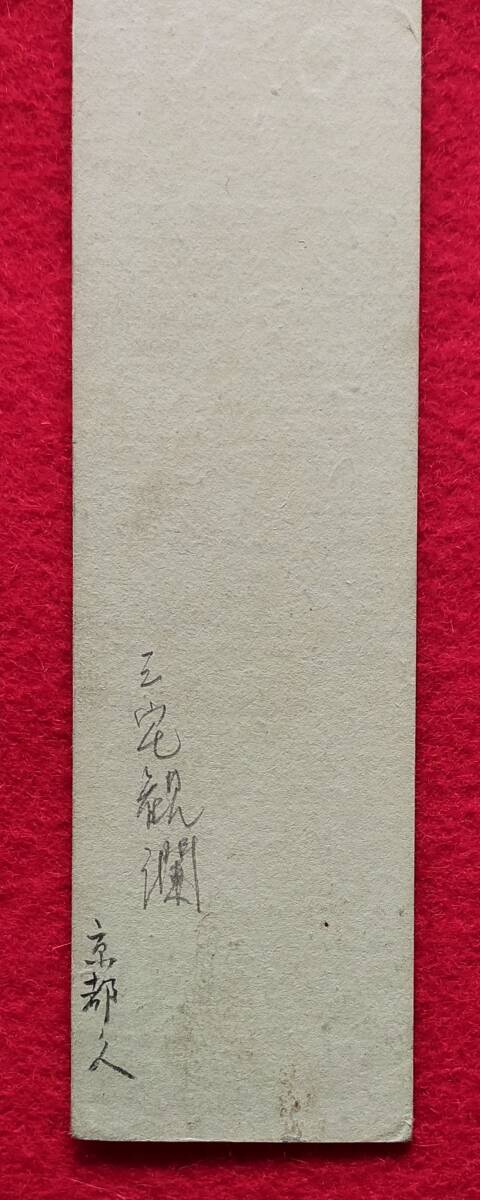 三宅観瀾
京都ノ人